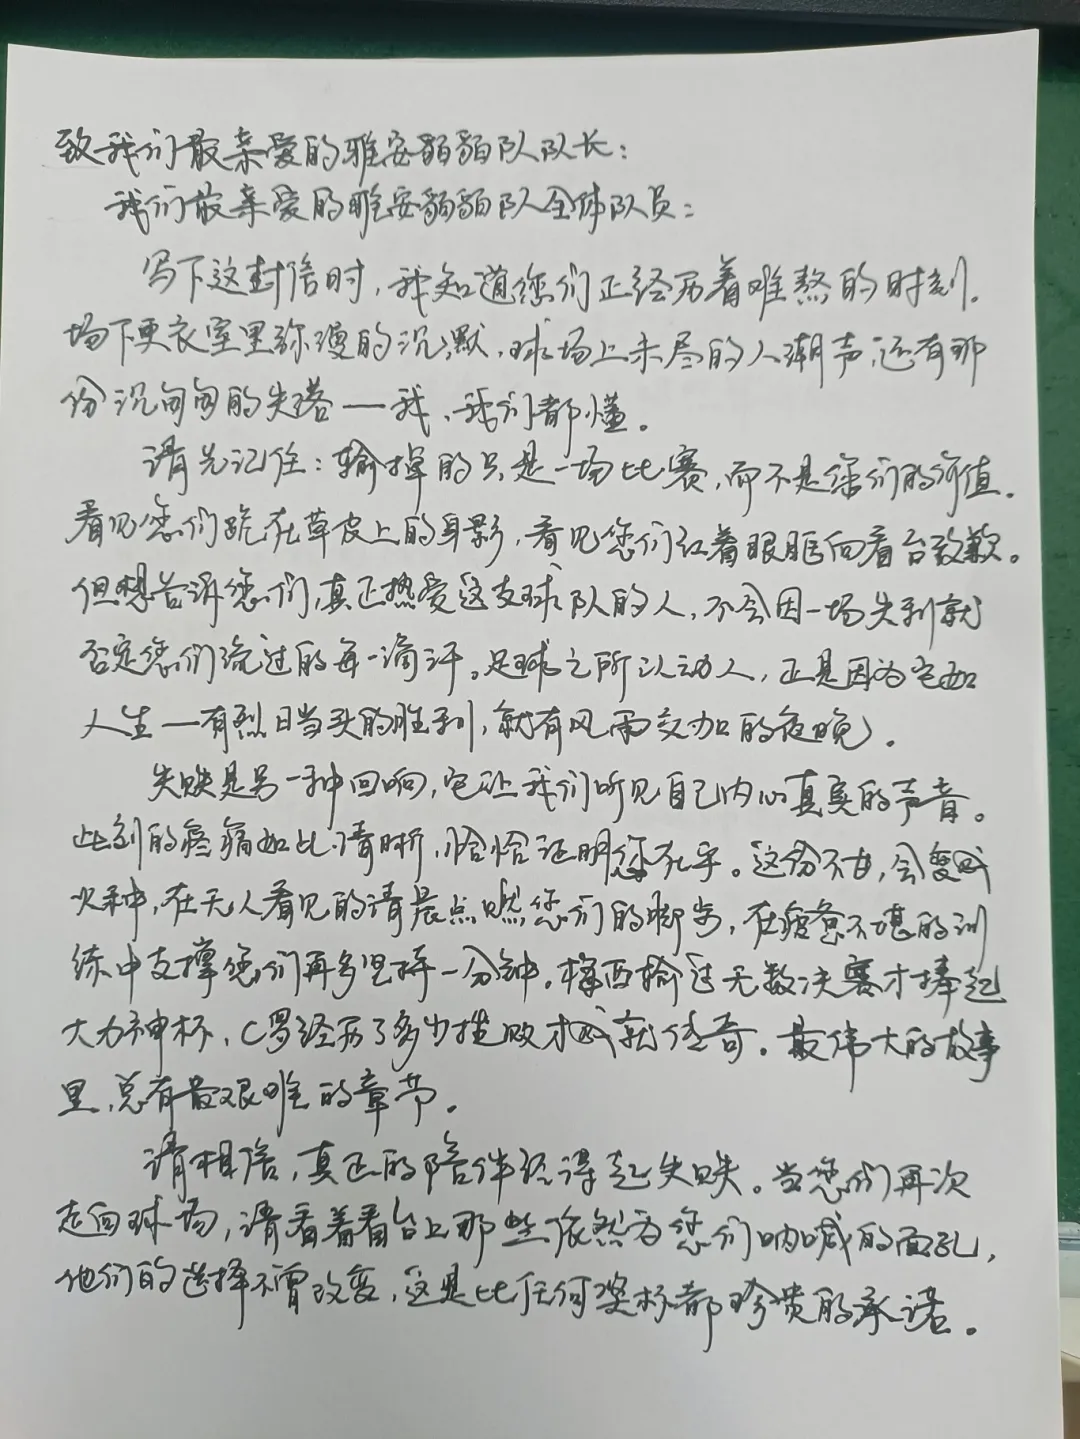 致我们最亲爱的雅安貊貊队队长：
我们最亲爱的雅安貊貊队全体队员：
写下这封信时，我知道您们正经历着难熬的时刻。
场下更衣室里弥漫的沉默，球场上未尽的人潮声，还有那
份沉甸甸的失落——我、我们都懂。
请先记住：输掉的只是一场比赛，而不是您们的价值。
看见您们跪在草皮上的身影，看见您们红着眼眶向看台致歉。
但想告诉您们，真正热爱这支球队的人，不会因一场失利就
否定您们流过的每一滴汗。足球之所以动人，正是因为它如
人生——有烈日当头的胜利，就有风雨交加的夜晚。
失败是另一种回响，它让我们听见自己内心真实的声音。
此刻的疼痛如此清晰，恰恰证明您在乎。这份不甘，会变成
火种，在无人看见的清晨点燃您们的脚步，在疲惫不堪的训
练中支撑您们再多坚持一分钟。梅西输过无数决赛才捧起
大力神杯，C罗经历了多少挫败才成就传奇。最伟大的故事
里，总有最艰难的章节。
请相信，真正的陪伴经得起失败。当您们再次
走向球场，请看着看台上那些依然为您们呐喊的面孔，
他们的选择不曾改变，这是比任何奖杯都珍贵的承诺。